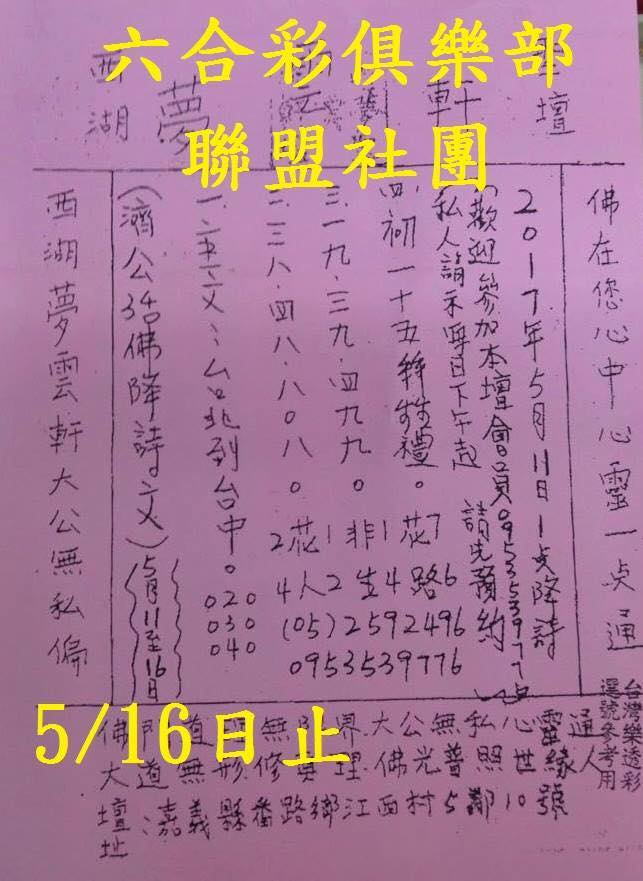 六合彩俱樂部
聯盟社團
西湖夢
聖壇
佛在您心中心靈一点通
2017年5月11日1点降詩
(歡迎參加本壇會員0953539776)
私人請示每日下午起 請先預約
四.初一十五拜牲禮。花7路6
三.一九.三九.四九九。1非1生4
二.三八.四八.八0八。2花4人2
台北到台中。020
030
040
(05)2592496
0953539776
(濟公活佛降詩文)5月11至16日
西湖夢雲軒大公無私偏
佛門道無形無界大公無私心靈通
大道無修理佛光普照世緣人
壇址:嘉義縣番路鄉江西村5鄰10號
台灣樂透彩
選號參考用
5/16日止